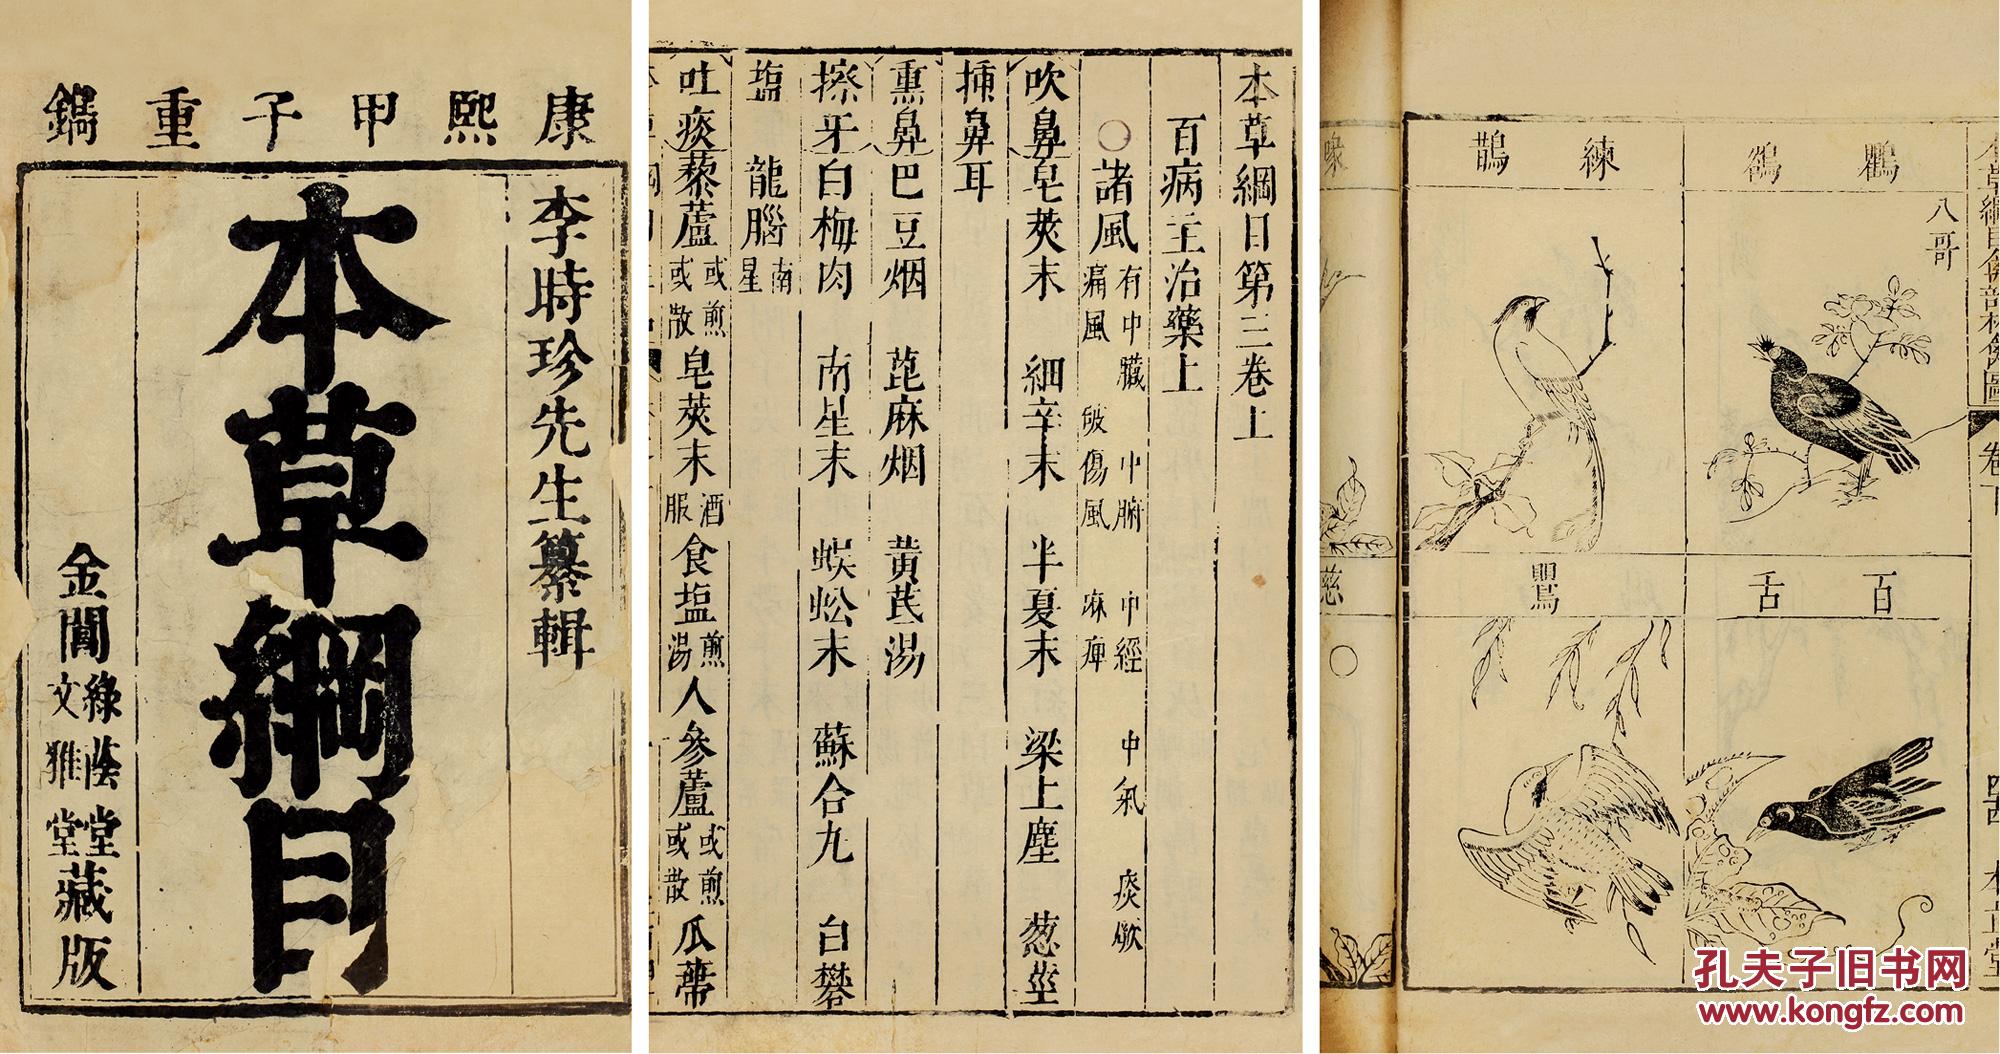 康熙甲子重鐫
李時珍先生纂輯
本草綱目
金閶綠蔭堂文雅堂藏版
本草綱目第三卷上
百病主治藥上
○諸風有中臟 中腑 中經 中氣 痰厥痛風 破傷風 麻痺
吹鼻皂莢末 細辛末 半夏末 梁上塵 葱莖
插鼻耳
熏鼻巴豆烟 蓖麻烟 黄芪湯
擦牙白梅肉 南星末 蜈蚣末 蘇合丸 白礬
塩 龍腦南星
吐痰藜蘆或煎或散皂莢末酒服食塩煎湯人參蘆或煎或散瓜蒂
鸜鵒
八哥
練鵲
百舌
鶯
慈
卷下
孔夫子旧书网
www.kongfz.com